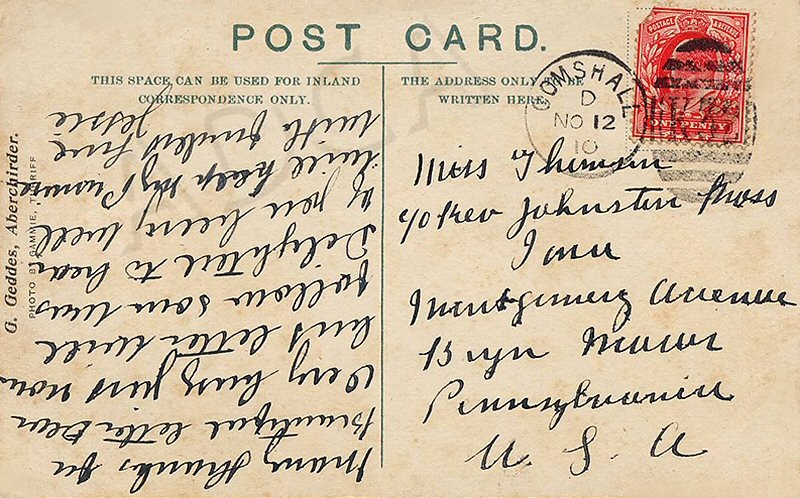 POST CARD.
THIS SPACE CAN BE USED FOR INLAND
CORRESPONDENCE ONLY.
THE ADDRESS ONLY TO BE
WRITTEN HERE
G. Geddes, Aberchirder.
PHOTO BY GAMMIE, TURRIFF
POSTAGE
ONE PENNY
GOMSHALL
D
NO 12
10
Many thanks for
Beautiful letter Dear
Very busy just now
but letter will
follow soon was
Delighted to hear
if you been well
will keep my Promise
with fondest love
Jessie
Miss Thomson
c/o Rev Johnston Ross
Montgomery Avenue
Bryn Mawr
Pennsylvania
U. S. A